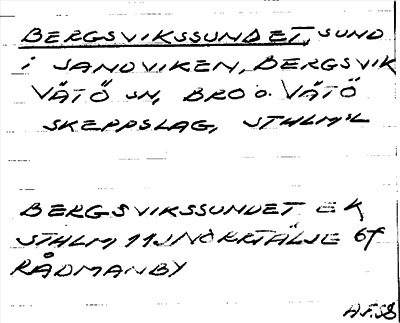 BERGSVIKSSUNDET, SUND
i SANDVIKEN, BERGSVIK
VÄTÖ SN, BRO O. VÄTÖ
SKEPPSLAG, STHLM:L
BERGSVIKSSUNDET EK
STHLM 11J NORRTÄLJE 6f
RÅDMANBY
H.F.58